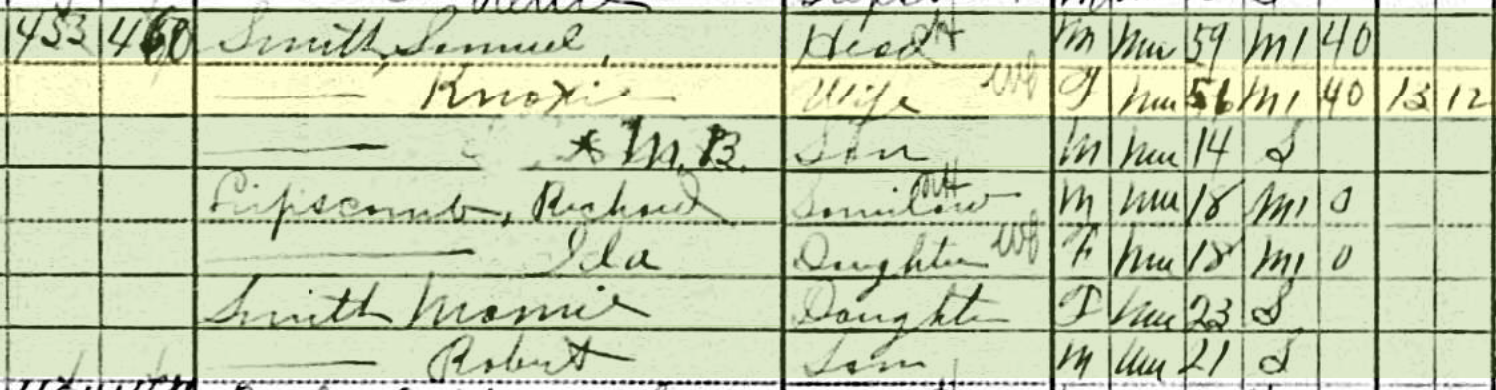 453 460 Smith, Samuel, Head M Mu 59 M1 40
—— Knoxie Wife F Mu 56 M1 40 13 12
—— * M. B. Son M Mu 14 S
Lipscomb, Richard Soninlaw M Mu 18 M1 0
—— Ida Daughter F Mu 18 M1 0
Smith Mamie Daughter F Mu 23 S
—— Robert Son M Mu 21 S